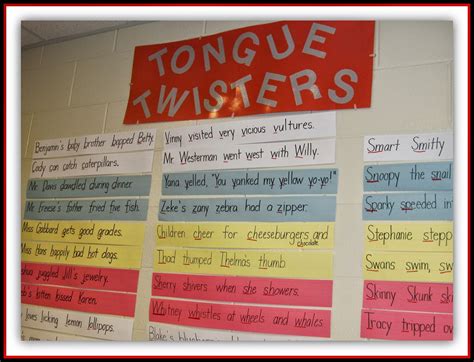 TONGUE
TWISTERS
Benjamin's baby brother bapped Betty.
Cody can catch caterpillars.
Mr. Davis dawdled during dinner.
Mr. Freese's father fried five fish.
Miss Gabbard gets good grades.
Hans happily had hot dogs.
juggled Jill's jewelry.
kissed Karen.
loves licking lemon lollipops.
Vinny visited very vicious vultures.
Mr. Westerman went west with Willy.
Yana yelled, "You yanked my yellow yo-yo!"
Zeke's zany zebra had a zipper.
Children cheer for cheeseburgers and chocolate
Thad thumped Thelma's thumb.
Sherry shivers when she showers.
Whitney whistles at wheels and whales.
Smart Smitty
Snoopy the snail
Sparky speeded
Stephanie stepp
Swans swim, sw
Skinny Skunk
Tracy tripped